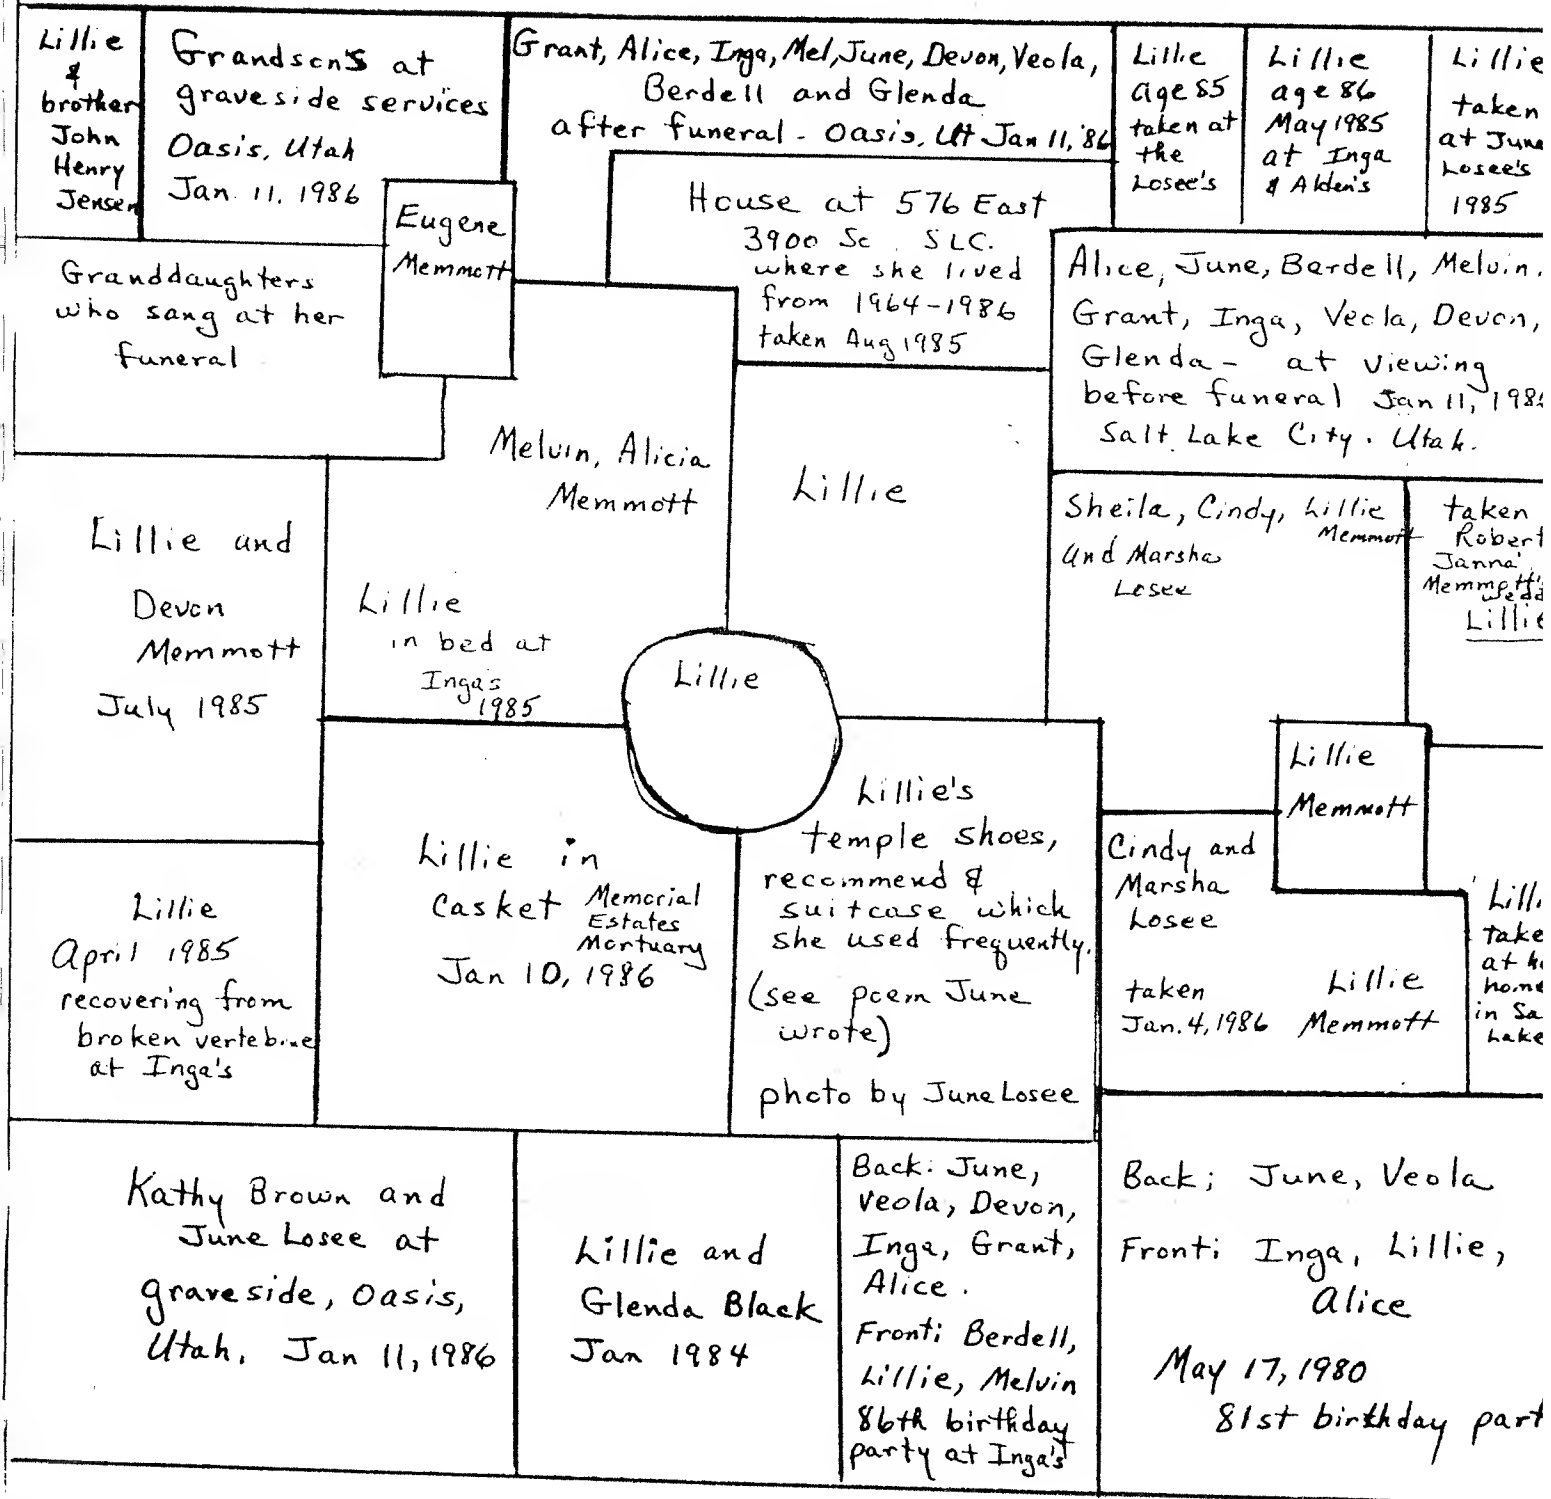 Lillie
&
brother
John
Henry
Jensen
Grandson's at
graveside services
Oasis, Utah
Jan. 11, 1986
Grant, Alice, Inga, Mel, June, Devon, Veola,
Berdell and Glenda
after funeral - Oasis, Ut Jan 11, '86
Lillie
age 85
taken at
the
Losee's
Lillie
age 86
May 1985
at Inga
& Alden's
Lillie
taken
at June
Losee's
1985
Eugene
Memmott
House at 576 East
3900 So. SLC.
where she lived
from 1964-1986
taken Aug 1985
Granddaughters
who sang at her
funeral
Alice, June, Berdell, Melvin,
Grant, Inga, Veola, Devon,
Glenda - at viewing
before funeral Jan 11, 198
Salt Lake City. Utah.
Melvin, Alicia
Memmott
Lillie
Sheila, Cindy, Lillie
Memmott
and Marsha
Losee
taken
Robert
Janna
Memmott's
Lillie
Lillie and
Devon
Memmott
July 1985
Lillie
in bed at
Inga's
1985
Lillie
Lillie
Memmott
Lillie's
temple shoes,
recommend &
suitcase which
she used frequently.
(see poem June
wrote)
photo by June Losee
Lillie in
casket Memorial
Estates
Mortuary
Jan 10, 1986
Cindy and
Marsha
Losee
taken
Jan. 4, 1986
Lillie
Memmott
Lilli
take
at h
home
in Sa
Lake
Lillie
April 1985
recovering from
broken vertebrae
at Inga's
Kathy Brown and
June Losee at
graveside, Oasis,
Utah. Jan 11, 1986
Lillie and
Glenda Black
Jan 1984
Back: June,
Veola, Devon,
Inga, Grant,
Alice.
Front: Berdell,
Lillie, Melvin
86th birthday
party at Inga's
Back; June, Veola
Front: Inga, Lillie,
Alice
May 17, 1980
81st birthday part